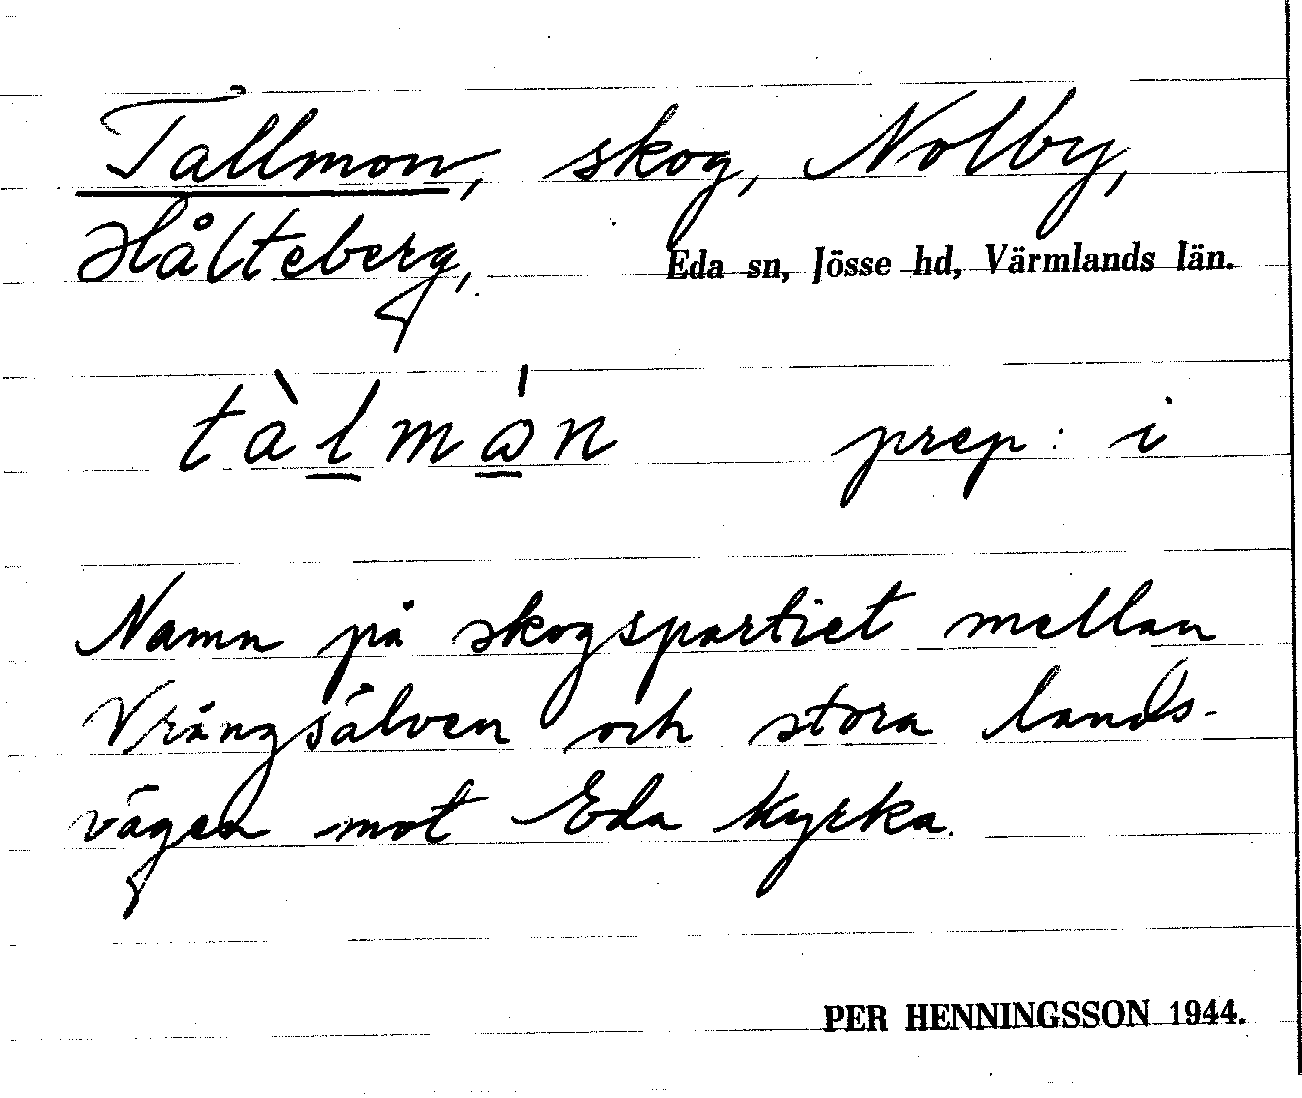 Tallmon, skog, Nolby,
Hålteberg, Eda sn, Jösse hd, Värmlands län.
tàl̲mώ̲n prep: i
Namn på skogspartiet mellan
Vrångsälven och stora lands-
vägen mot Eda kyrka.
PER HENNINGSSON 1944.